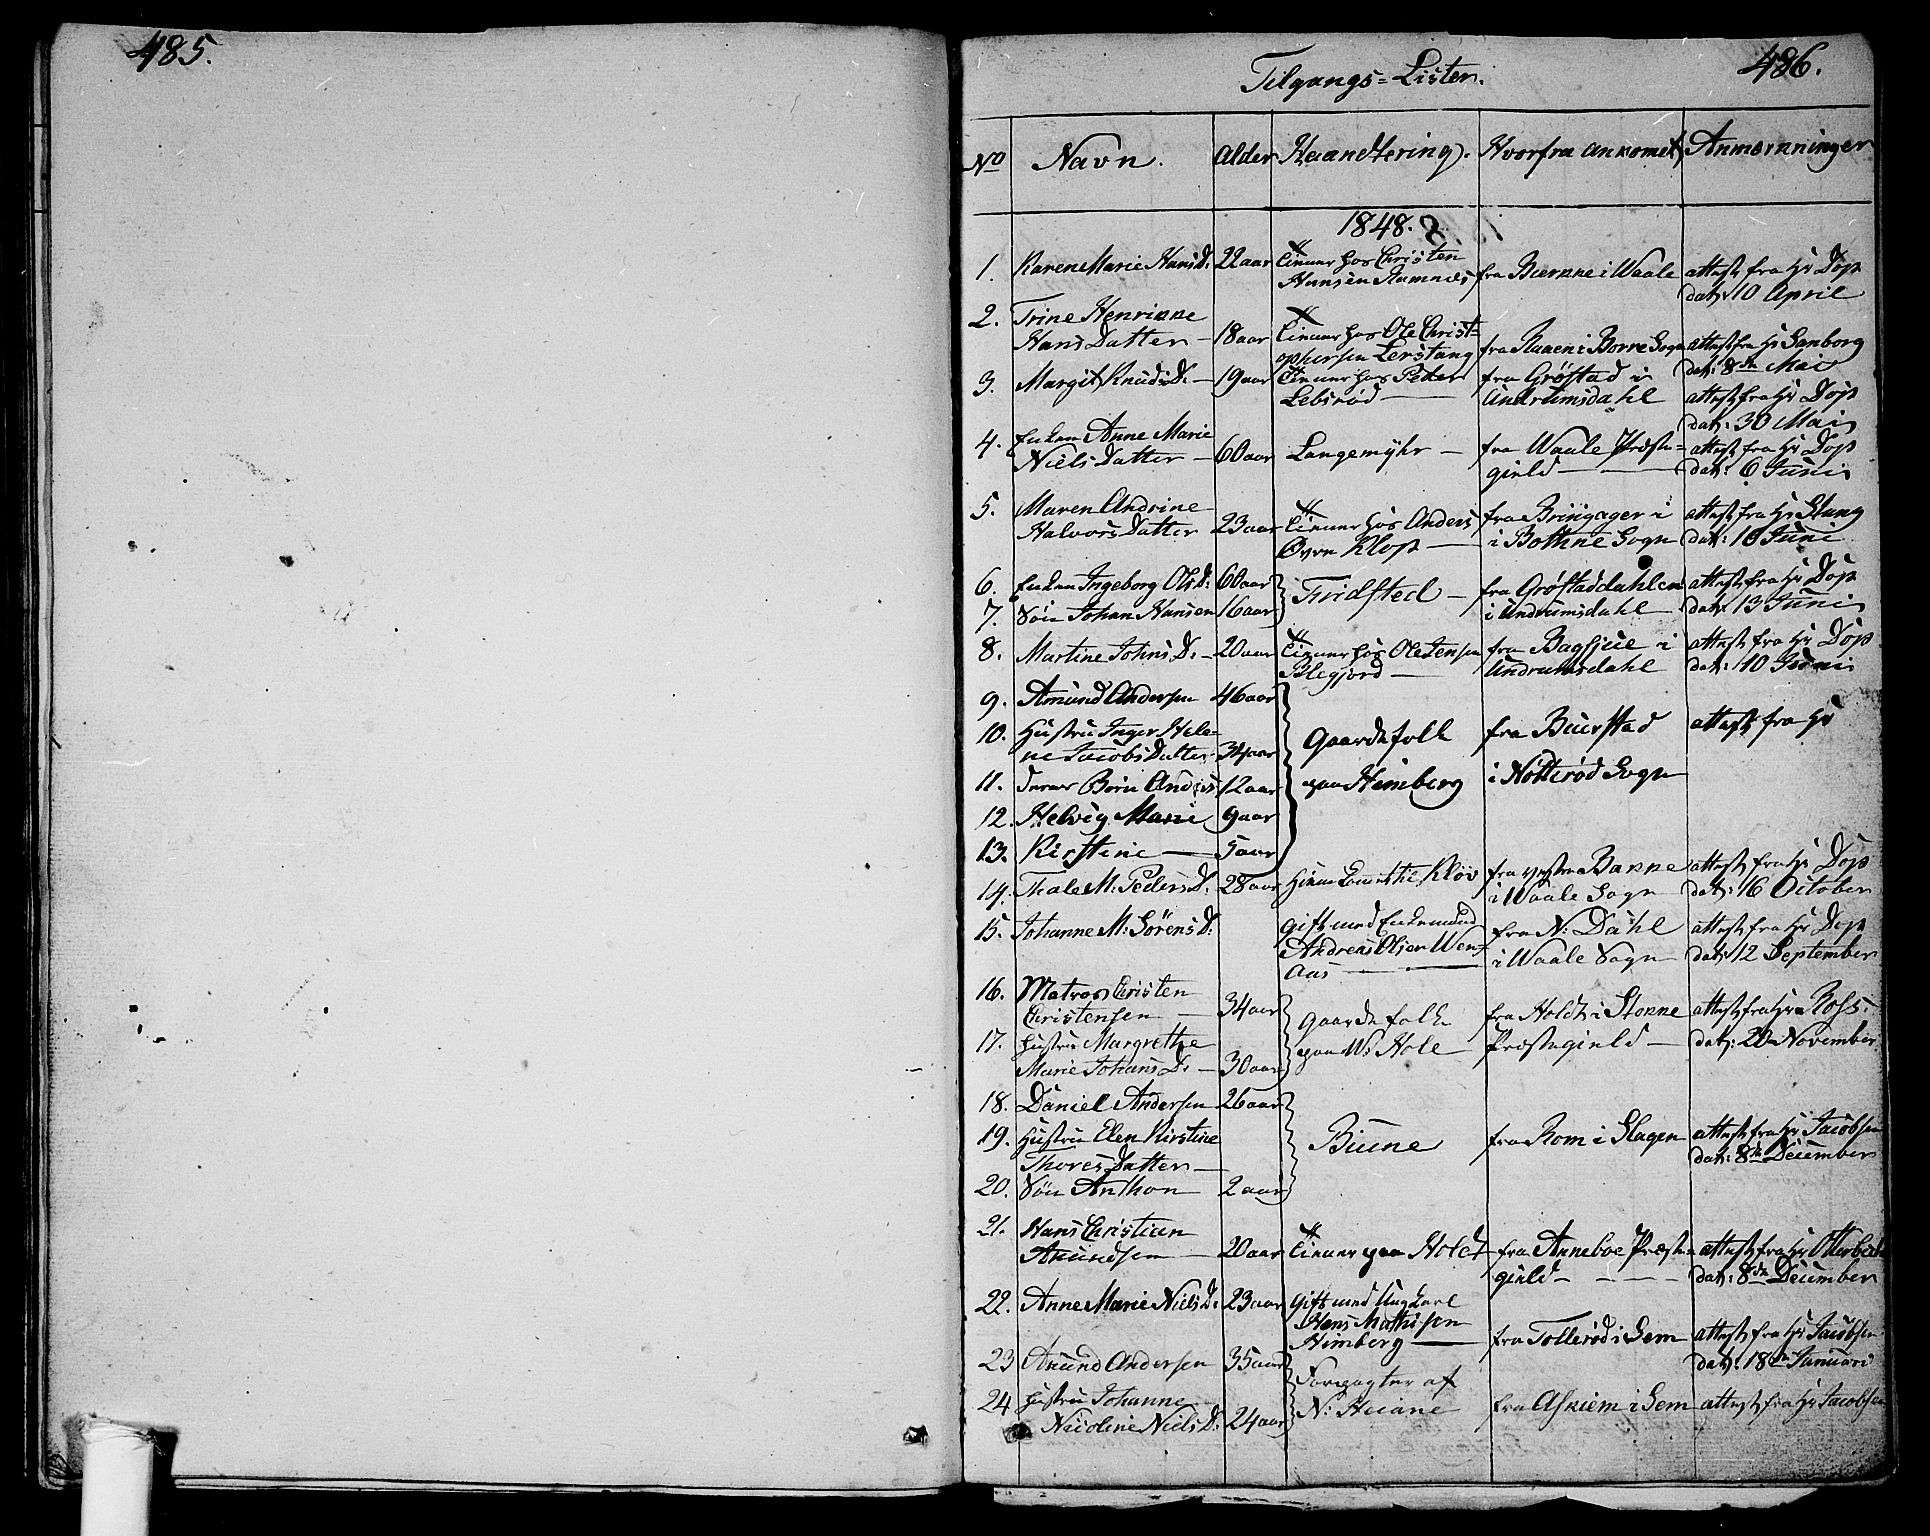 485.
486.
Tilgangs=Listen.
No Navn. Alder Haandtering. Hvorfra ankomet Anmærkninger
1848.
1. Karen Marie Hans D: 22 aar Tiener hos Christen Hansen Ramnæs fra Bærkne i Waale attest fra Hr Døp dat: 10 April
2. Trine Henrikke Hans Datter 18 aar Tiener hos Ole Christ=ophersen Lerstang fra Raaen i Borre Sogn attest fra Hr Sanborg dat: 8de Mai
3. Margit Knuds D: 19 aar Tiener hos Peder Lebsrød fra Grøstad i Andrumsdahl attest fra Hr Døp dat: 30 Mai
4. Enken Anne Marie Niels Datter 60 aar Langemÿhr fra Waale Præste=gield attest fra Hr Døp dat: 6 Juni
5. Maren Andrine Halvors Datter 23 aar Tiener hos Anders Øvre Klop fra Bringager i i Bothne Sogn attest fra Hr Stang dat: 10 Juni
6. Enken Ingeborg Ols D: 60 aar Fridsted fra Grøstaddahlen attest fra Hr Døp
7. Søn Johan Hansen 16 aar i Andrumsdahl dat: 13 Juni
8. Martine Johns D: 20 aar Tiener hos Ole Jensen Blegjord fra Bagsjue i Andrumsdahl attest fra Hr Døp dat: 10 Juni
9. Amund Andersen 46 aar
10. Hustru Inger Hele=ne Jacobs Datter 34 aar Gaardefolk fra Buerstad attest fra Hr
11. Deres Børn Anders 12 aar paa Himberg i Notterød Sogn
12. Helvig Marie 9 aar
13. Kirstine 5 aar
14. Thale M. Peders D: 28 aar Kløv fra vestre Bakke i Waale Sogn attest fra Hr Døp dat: 16 October
15. Johanne M: Sørens D: Gift med Enkemand Andreas Olsen Wen=Aas fra N: Dahl i Waale Sogn attest fra Hr Døp dat: 12 September
16. Matros Christen Christensen 34 aar Gaardefolk fra Holdt i Stokke attest fra Hr Ross.
17. Hustru Margrethe Marie Johans D: 30 aar paa W: Hole Præstegield dat: 20 November
18. Daniel Andersen 26 aar
19. Hustru Elen Kirstine Thores Datter Biune fra Rom i Slagen attest fra Hr Jacobsen dat: 8de December
20. Søn Anthon 2 aar
21. Hans Christian Amundsen 20 aar Tiener paa Holdt fra Anneboe Præste=gield attest fra Hr dat: 8de December
22. Anne Marie Niels D: 23 aar Gift med Ungkarl Hans Mathisen Himberg fra Tollerød i Sem attest fra Hr Jacobsen dat: 18de Januari
23 Anund Andersen 35 aar Forpagter af
24 Hustru Johanne Nicoline Niels D: 24 aar N: Heiane fra Askiem i Sem attest fra Hr Jacobsen